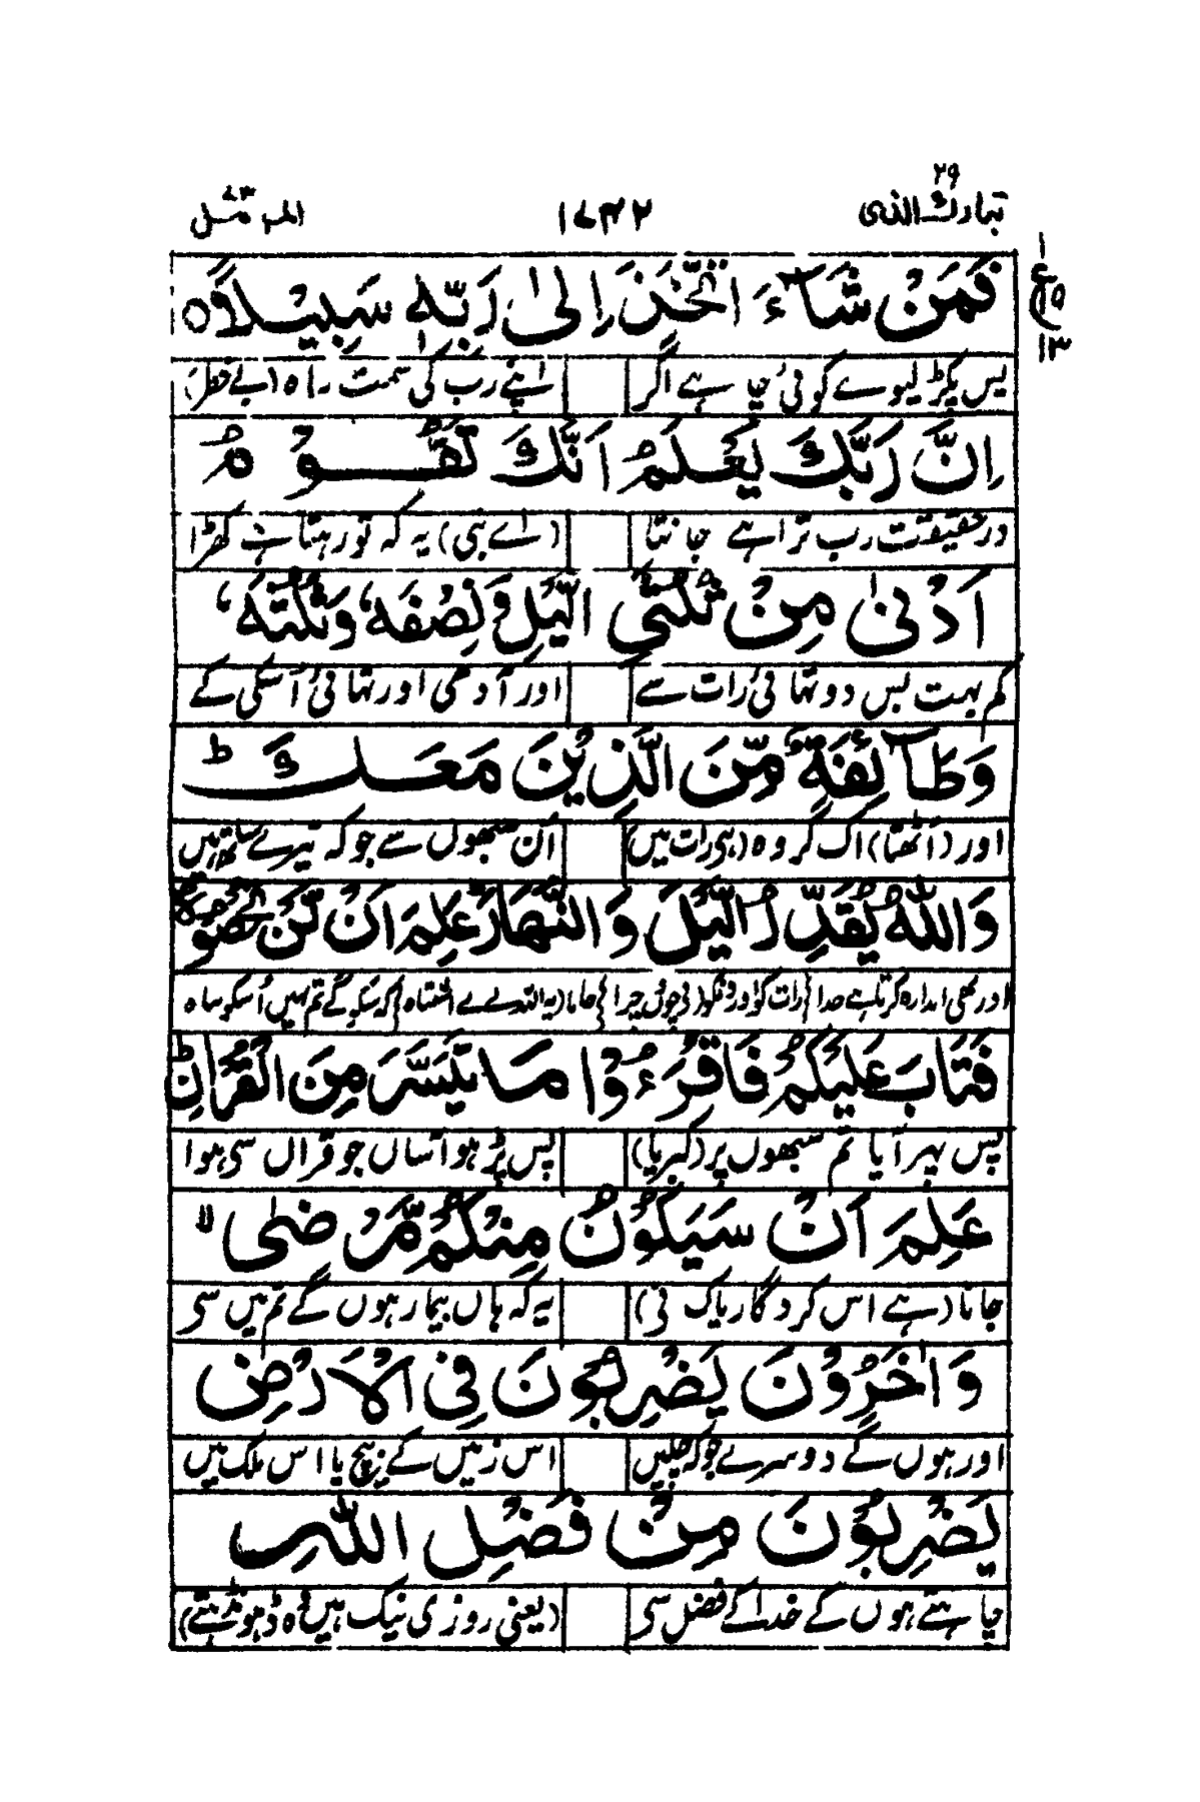 تبارك الذی ۲۹ ۱۷۴۲ المزمّل ۷۳
فَمَنْ شَآءَ اتَّخَذَ اِلٰى رَبِّهٖ سَبِيْلًا ۝
پس پکڑ لیوے کوئی چاہے اگر اپنے رب کی سمت راہ (بے خطر)
ع ۱ ۱۳
اِنَّ رَبَّكَ يَعْلَمُ اَنَّكَ تَقُوْمُ
درحقیقت رب ترا ہے جانتا (اے نبی) یہ کہ تو رہتا ہے کھڑا
اَدْنٰى مِنْ ثُلُثَىِ الَّيْلِ وَنِصْفَهٗ وَثُلُثَهٗ
کم بہت بس دو تہائی رات سے اور آدھی اور تہائی اُسکی کے
وَطَآئِفَةٌ مِّنَ الَّذِيْنَ مَعَكَ ؕ
اور (اُٹھتا) اک گروہ (بھی رات میں) اُن سبھوں سے جو کہ تیرے ساتھ ہیں
وَاللّٰهُ يُقَدِّرُ الَّيْلَ وَالنَّهَارَ عَلِمَ اَنْ لَّنْ تُحْصُوْهُ
فَتَابَ عَلَيْكُمْ فَاقْرَءُوْا مَا تَيَسَّرَ مِنَ الْقُرْاٰنِ ؕ
پس پھر آیا تم سبھوں پر (کبریا) پس پڑہو آساں جو قرآں سی ہوا
عَلِمَ اَنْ سَيَكُوْنُ مِنْكُمْ مَّرْضٰى ۙ
جانا (ہے اس کردگار پاک نی) یہ کہ ہاں بیمار ہوں گے تم میں سی
وَاٰخَرُوْنَ يَضْرِبُوْنَ فِى الْاَرْضِ
اور ہوں گے دوسرے جو کہ چلیں اس زمیں کے بیچ یا اس ملک میں
يَضْرِبُوْنَ مِنْ فَضْلِ اللّٰهِ
چاہتے ہوں گے خدا کے فضل سی (یعنی روزی نیک ہیں وہ ڈہونڈہتے)